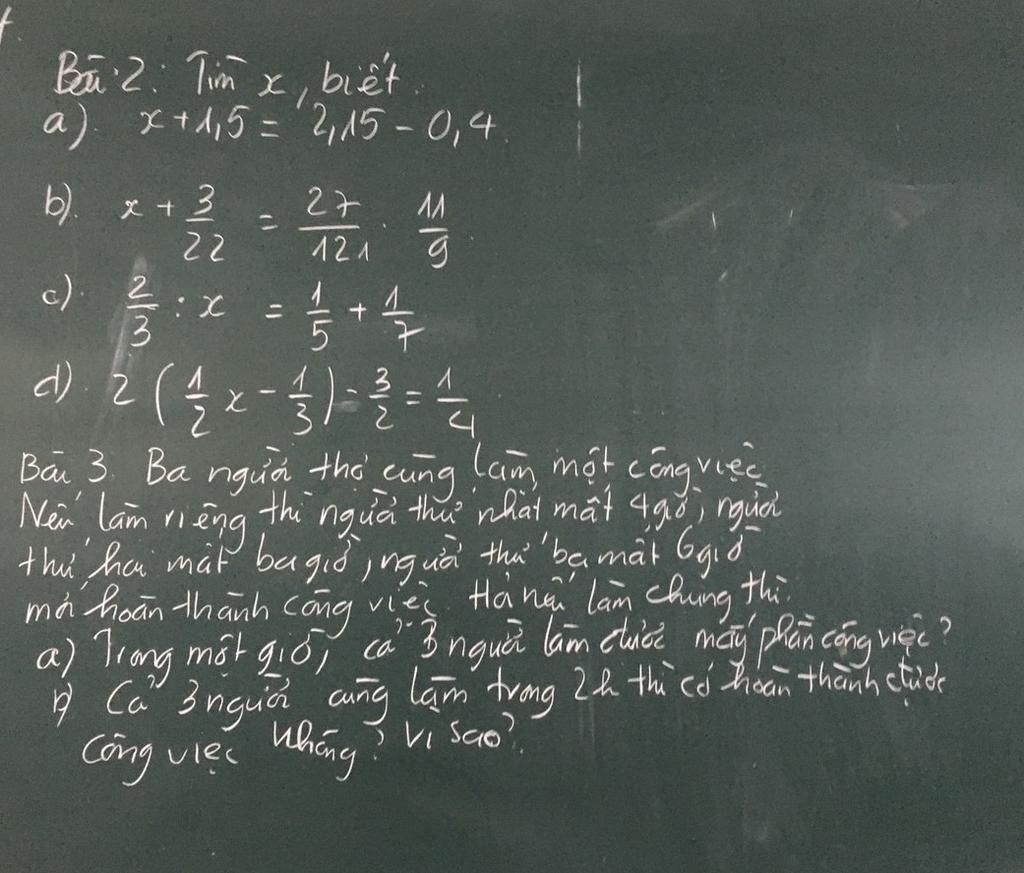 Bài 2: Tìm x, biết.
a). x + 1,5 = 2,15 - 0,4
b). x + 3/22 = 27/121 . 11/9
c). 2/3 : x = 1/5 + 1/7
d). 2 (1/2 x - 1/3) - 3/2 = 1/4
Bài 3. Ba người thợ cùng làm một công việc
Nếu làm riêng thì người thứ nhất mất 4 giờ, người
thứ hai mất ba giờ, người thứ ba mất 6 giờ
mới hoàn thành công việc. Hỏi nếu làm chung thì:
a) Trong một giờ, cả 3 người làm được mấy phần công việc?
b) Cả 3 người cùng làm trong 2h thì có hoàn thành được
công việc không? Vì sao?